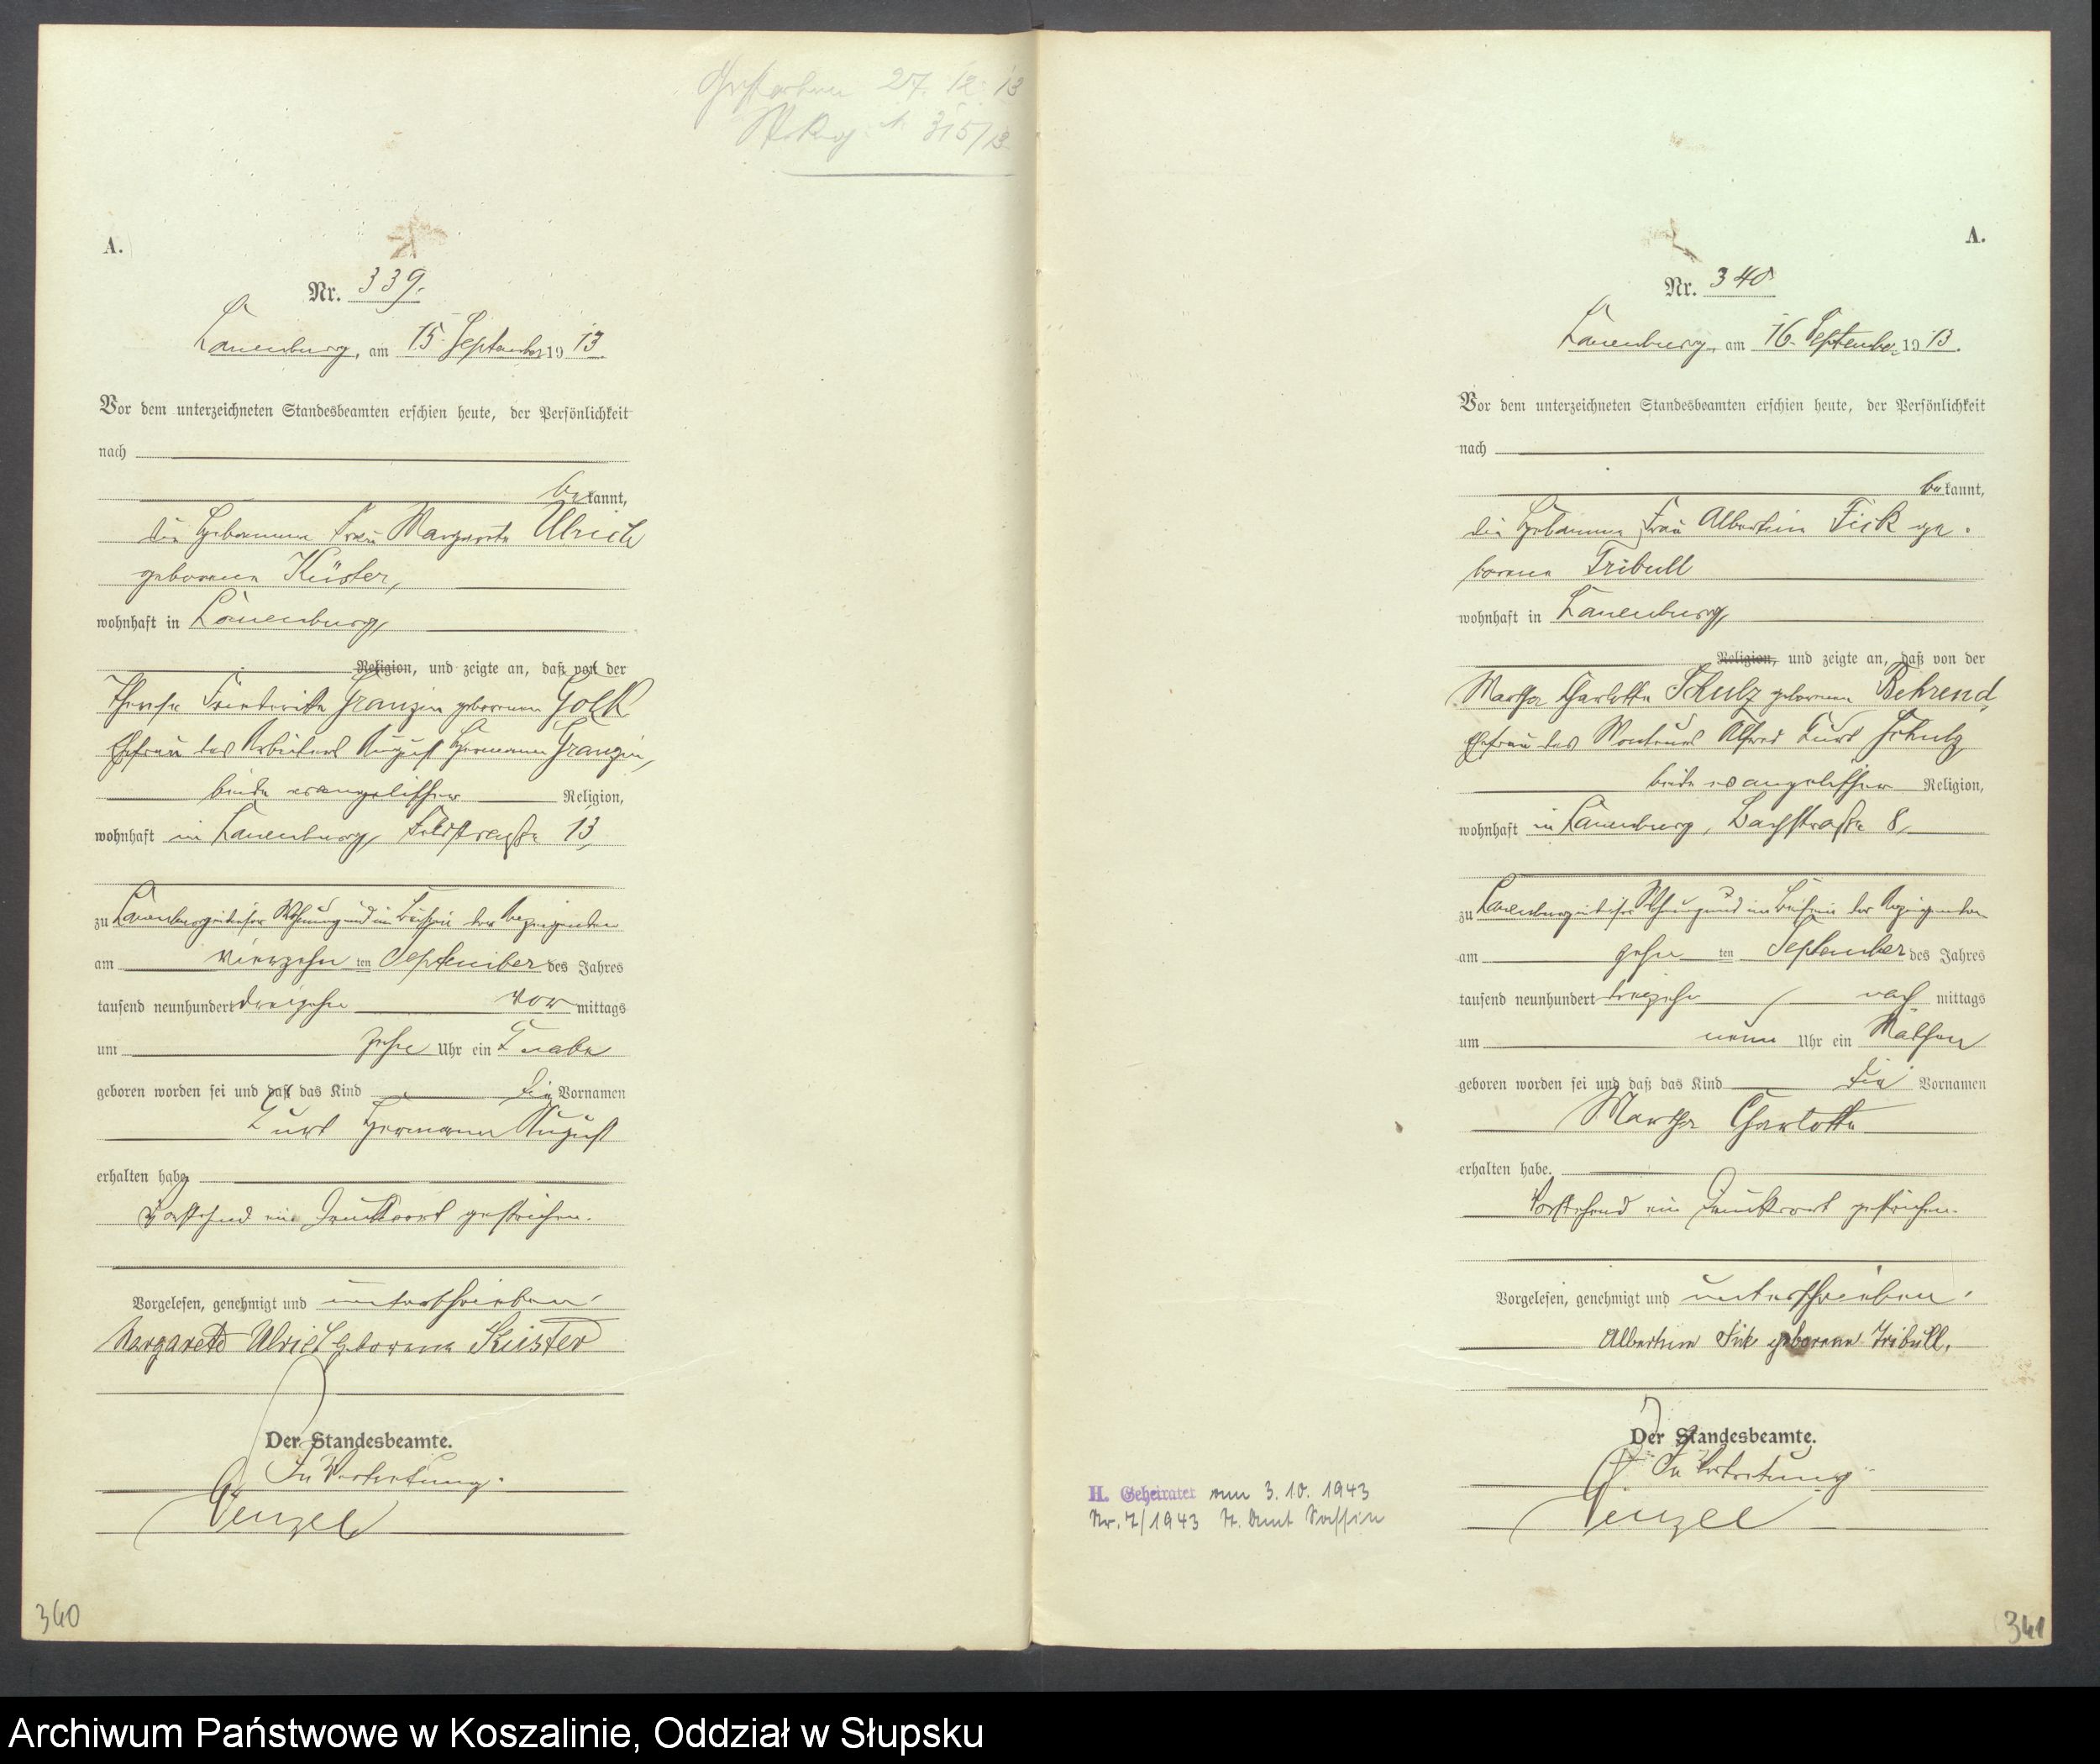 Gestorben 27. 12. 13
315/13
A.
Nr. 339.
Lauenburg, am 15. September 1913.
Vor dem unterzeichneten Standesbeamten erschien heute, der Persönlichkeit
nach
bekannt,
die Hebamme Frau Margarete Ulrich
geborene Küster,
wohnhaft in Lauenburg,
Religion, und zeigte an, daß von der
Therese Friederike Granzin geborenen Golk
Ehefrau des Arbeiters August Hermann Granzin,
beide evangelischer Religion,
wohnhaft in Lauenburg, Feldstraße 13,
zu Lauenburg in dieser Wohnung und im Beisein der Anzeigenden
am vierzehnten September des Jahres
tausend neunhundert dreizehn vormittags
um zehn Uhr ein Knabe
geboren worden sei und daß das Kind die Vornamen
Kurt Hermann August
erhalten habe
Vorstehend ein Druckwort gestrichen.
Vorgelesen, genehmigt und unterschrieben.
Margarete Ulrich geborene Küster
Der Standesbeamte.
In Vertretung.
Wenzel
340
A.
Nr. 340
Lauenburg, am 16. September 1913.
Vor dem unterzeichneten Standesbeamten erschien heute, der Persönlichkeit
nach
bekannt,
die Hebamme Frau Albertine Fick ge-
borene Tribull
wohnhaft in Lauenburg,
Religion, und zeigte an, daß von der
Martha Charlotte Schulz geborenen Behrend,
Ehefrau des Monteurs Alfred Kurt Schulz
beide evangelischer Religion,
wohnhaft in Lauenburg, Bachstraße 8,
zu Lauenburg in dieser Wohnung und im Beisein der Anzeigenden
am zehnten September des Jahres
tausend neunhundert dreizehn nachmittags
um neun Uhr ein Mädchen
geboren worden sei und daß das Kind die Vornamen
Martha Charlotte
erhalten habe.
Vorstehend ein Druckwort gestrichen.
Vorgelesen, genehmigt und unterschrieben.
Albertine Fick geborene Tribull.
Der Standesbeamte.
In Vertretung
Wenzel
II. Geheiratet am 3.10.1943
Nr. 7/1943 St. Amt
341
Archiwum Państwowe w Koszalinie, Oddział w Słupsku